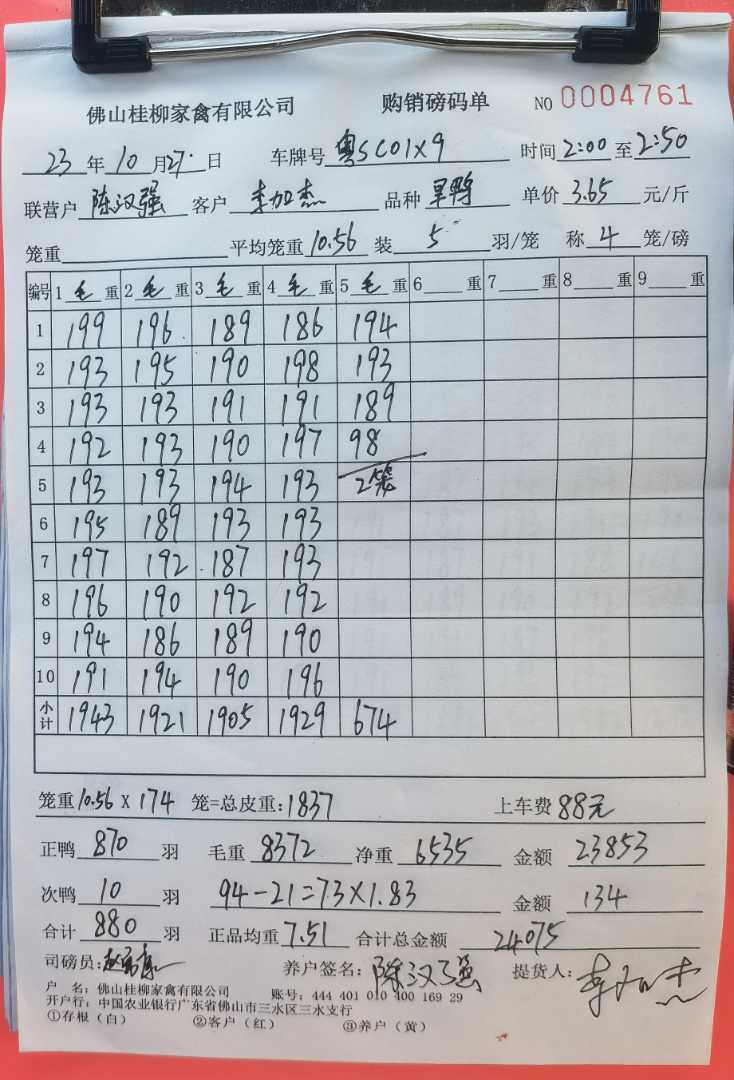 佛山桂柳家禽有限公司 购销磅码单 NO 0004761
23 年 10 月 27 日 车牌号 粤SC01X9 时间 2:00 至 2:50
联营户 陈汉强 客户 李加杰 品种 旱鸭 单价 3.65 元/斤
笼重 平均笼重 10.56 装 5 羽/笼 称 4 笼/磅
编号 1 毛 重 2 毛 重 3 毛 重 4 毛 重 5 毛 重 6 重 7 重 8 重 9 重
1 199 196 189 186 194
2 193 195 190 198 193
3 193 193 191 191 189
4 192 193 190 197 98
5 193 193 194 193 2笼
6 195 189 193 193
7 197 192 187 193
8 196 190 192 192
9 194 186 189 190
10 191 194 190 196
小计 1943 1921 1905 1929 674
笼重 10.56 X 174 笼=总皮重: 1837 上车费 88元
正鸭 870 羽 毛重 8372 净重 6535 金额 23853
次鸭 10 羽 94-21=73×1.83 金额 134
合计 880 羽 正品均重 7.51 合计总金额 24075
司磅员: 养户签名: 陈汉强 提货人: 李加杰
户 名: 佛山桂柳家禽有限公司 账号: 444 401 010 400 169 29
开户行: 中国农业银行广东省佛山市三水区三水支行
①存根（白） ②客户（红） ③养户（黄）